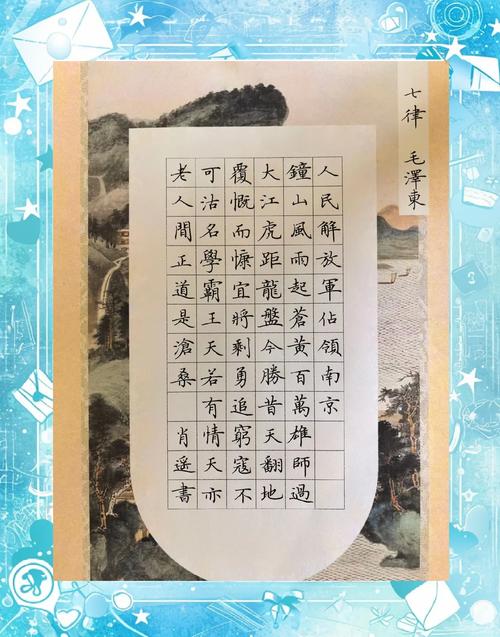 七律 毛澤東
人民解放軍佔領南京
鐘山風雨起蒼黃百萬雄師過
大江虎距龍盤今勝昔天翻地
覆慨而慷宜將剩勇追窮寇不
可沽名學霸王天若有情天亦
老人間正道是滄桑 肖遥書